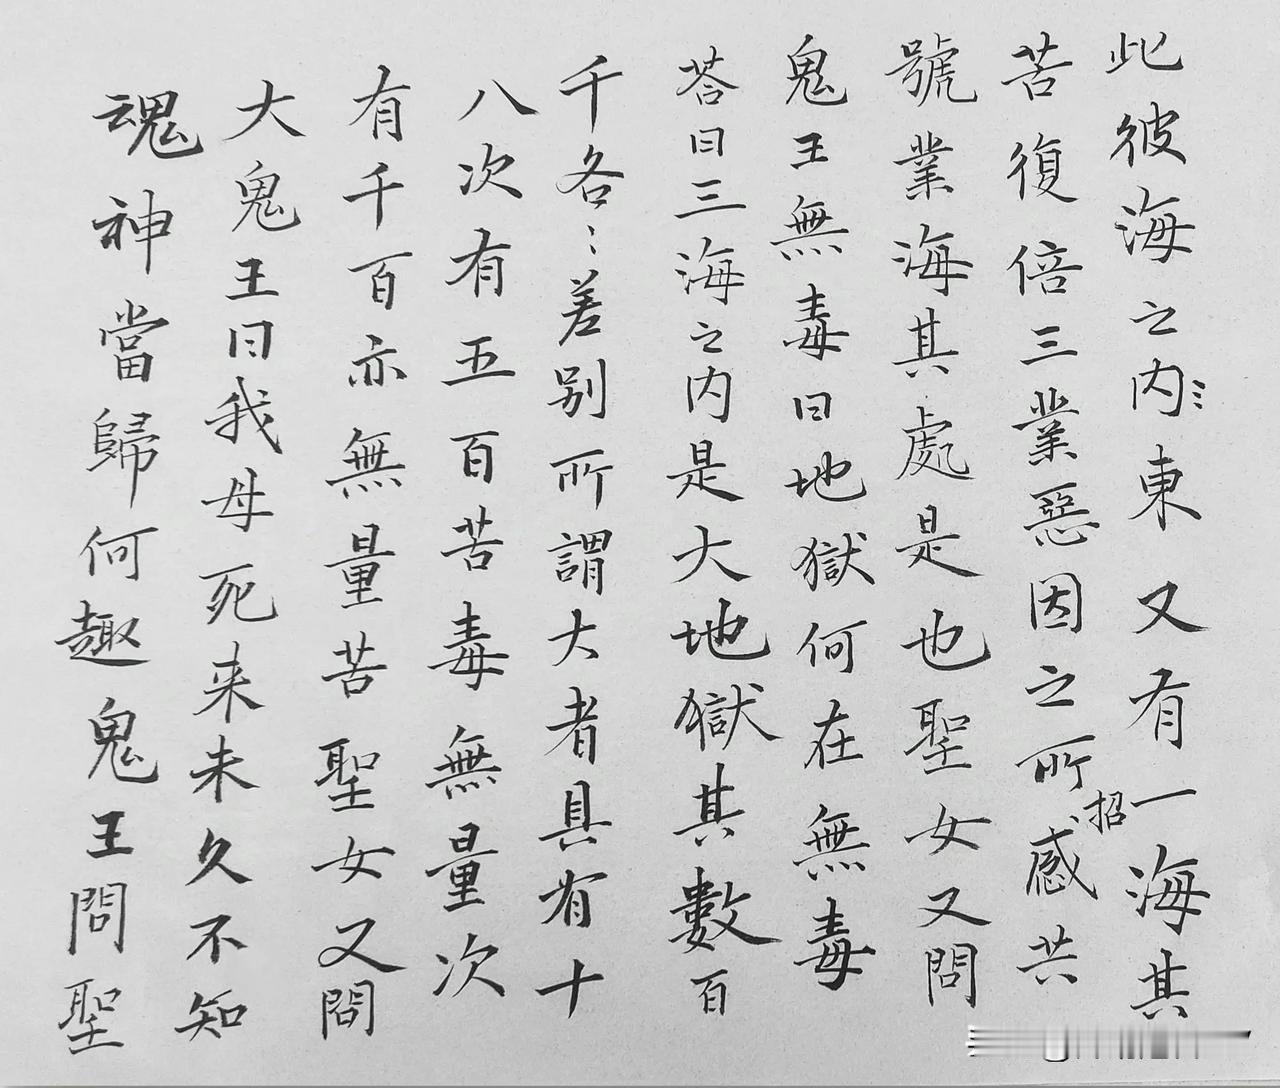 此彼海之内東又有一海其
苦復倍三業惡因之所招感共
號業海其處是也聖女又問
鬼王無毒曰地獄何在無毒
荅曰三海之内是大地獄其數百
千各〻差别所謂大者具有十
八次有五百苦毒無量次
有千百亦無量苦聖女又問
大鬼王曰我母死来未久不知
魂神當歸何趣鬼王問聖